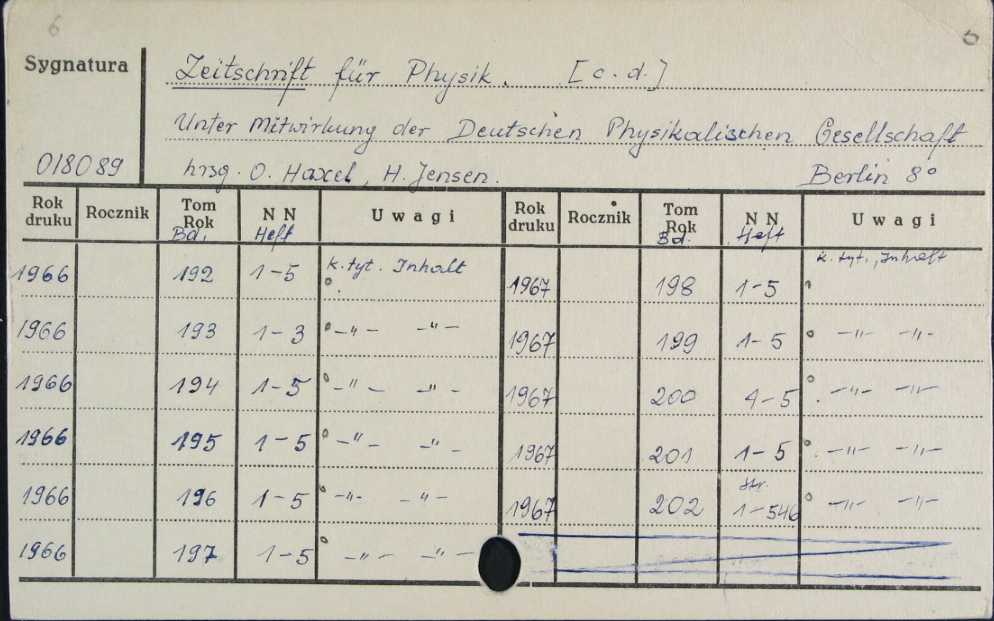 6 5
Sygnatura Zeitschrift für Physik. [c.d.]
Unter Mitwirkung der Deutschen Physikalischen Gesellschaft
018089 hrsg. O. Haxel, H. Jensen. Berlin 8°
Rok druku Rocznik Tom Rok Bd. NN Heft Uwagi Rok druku Rocznik Tom Rok Bd. NN Heft Uwagi
1966 192 1-5 k. tyt. Inhalt 1967 198 1-5 k. tyt., Inhalt
1966 193 1-3 -"- -"- 1967 199 1-5 -"- -"-
1966 194 1-5 -"- -"- 1967 200 1-5 -"- -"-
1966 195 1-5 -"- -"- 1967 201 1-5 -"- -"-
1966 196 1-5 -"- -"- 1967 202 str. 1-546 -"- -"-
1966 197 1-5 -"- -"-